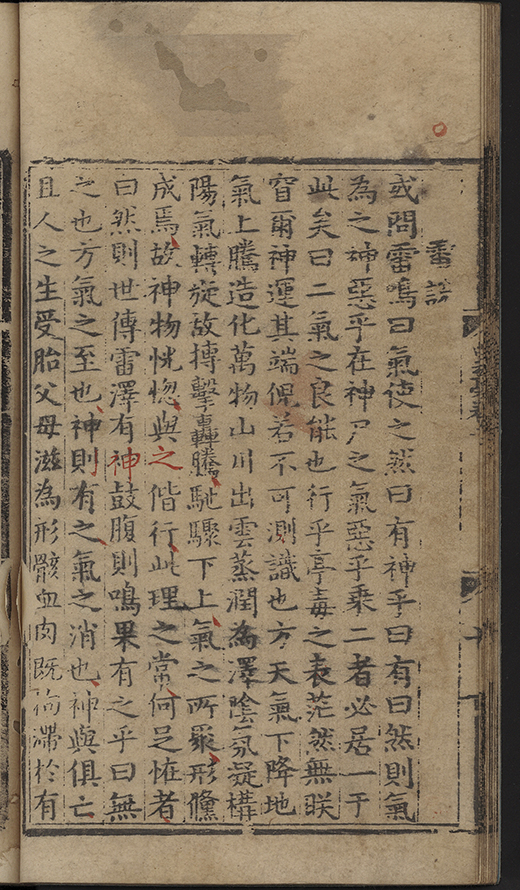 雷說
或問雷鳴曰氣使之然曰有神乎曰有曰然則氣
為之神惡乎在神尸之氣惡乎乗二者必居一于
此矣曰二氣之良能也行乎亭毒之表茫然無眹
窅爾神運其端倪若不可測識也方天氣下降地
氣上騰造化萬物山川出雲蒸潤為澤陰氛凝構
陽氣轉旋故搏擊轟騰馳驟下上氣之所聚形儻
成焉故神物恍惚與之偕行此理之常何足恠者
曰然則世傳雷澤有神鼓腹則鳴果有之乎曰無
之也方氣之至也神則有之氣之消也神與俱亡
且人之生受胎父母滋為形骸血肉既拘滯於有